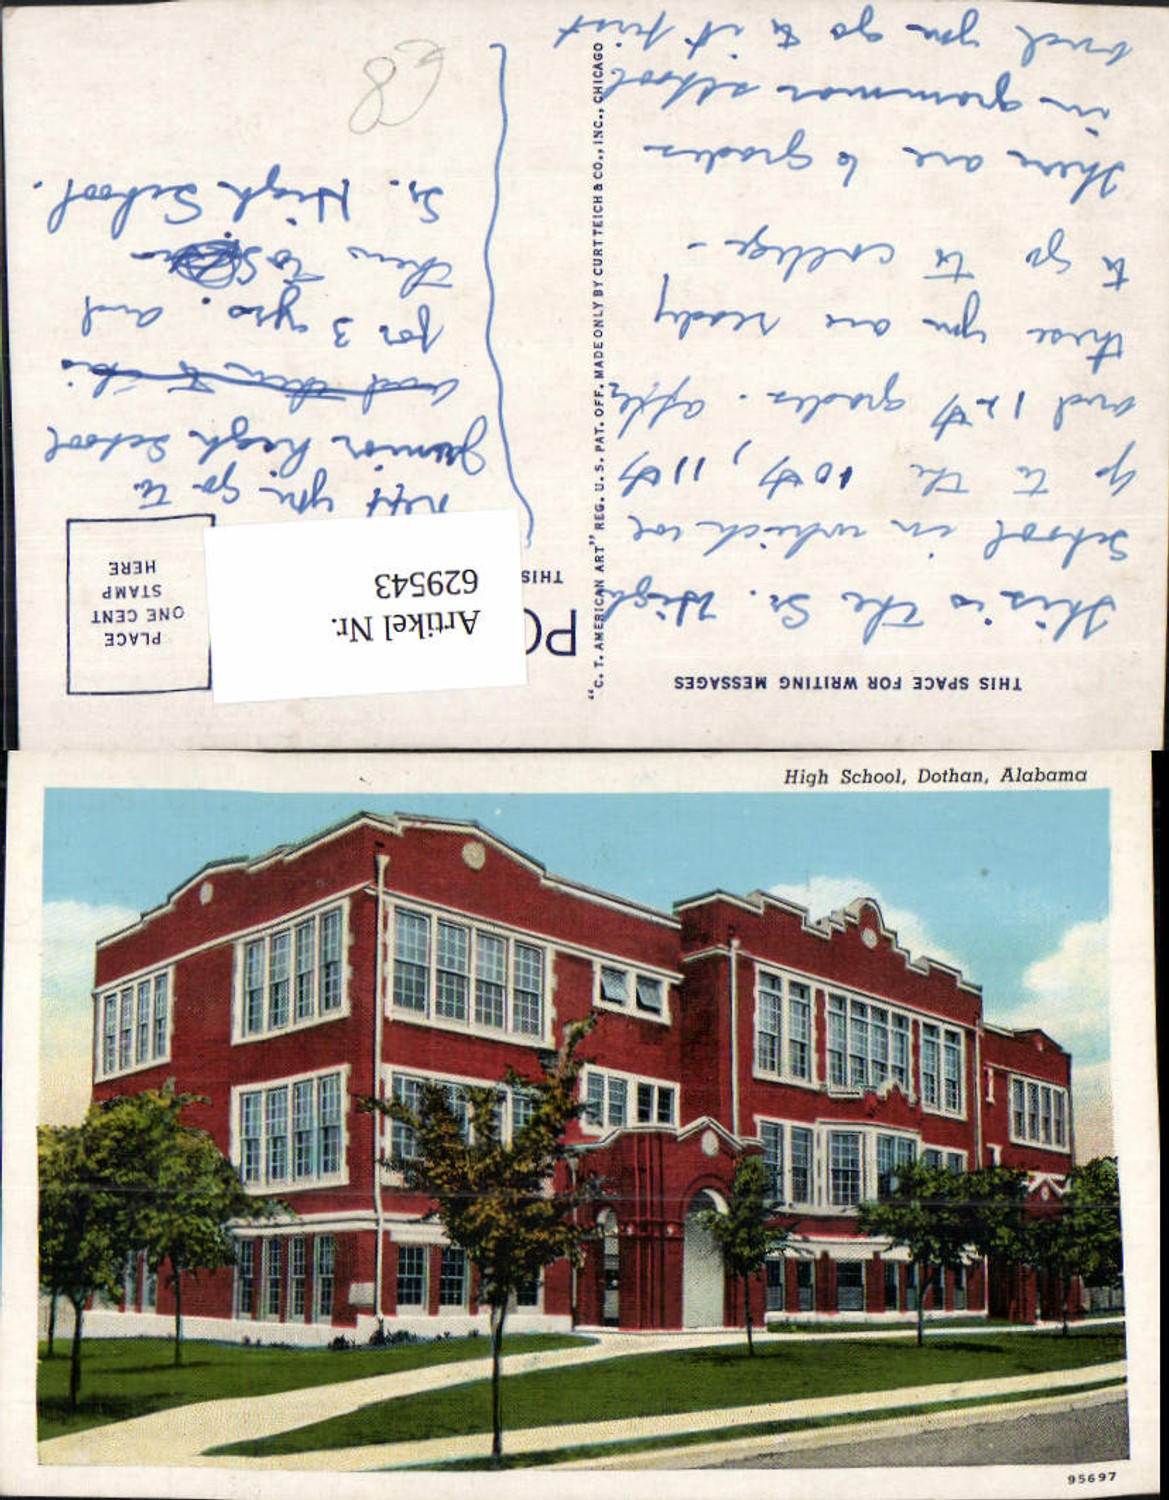 THIS SPACE FOR WRITING MESSAGES
This is the Sr. High
School in which we
go to the 10th, 11th
and 12th grades. after
these you are ready
to go to college -
There are 6 grades
in grammar school
and you go to it first
"C. T. AMERICAN ART" REG. U. S. PAT. OFF. MADE ONLY BY CURT TEICH & CO., INC., CHICAGO
PO
THIS
Artikel Nr.
629543
PLACE
ONE CENT
STAMP
HERE
next you go to
Junior high School
and then to
for 3 yrs. and
then to
Sr. High School.
High School, Dothan, Alabama
95697